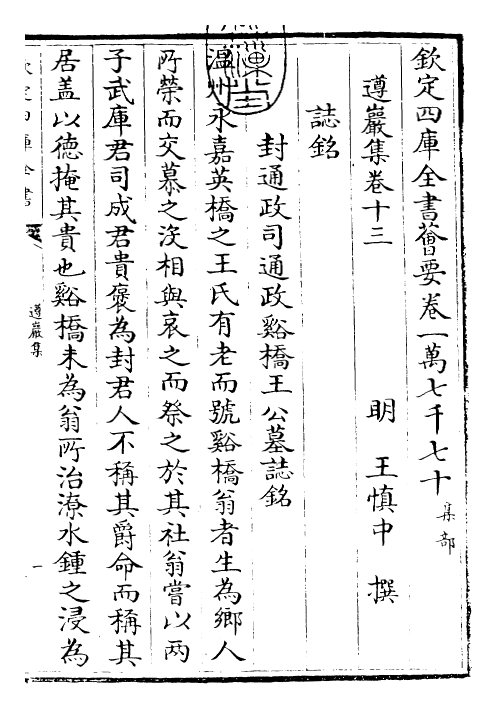 欽定四庫全書薈要卷一萬七千七十 集部
遵巖集卷十三 明 王慎中 撰
誌銘
封通政司通政谿橋王公墓誌銘
溫州永嘉英橋之王氏有老而號谿橋翁者生為鄉人
所榮而交慕之沒相與哀之而祭之於其社翁嘗以兩
子武庫君司成君貴褒為封君人不稱其爵命而稱其
居盖以德掩其貴也谿橋未為翁所治潦水鍾之浸為
欽定四庫全書
遵巖集
一